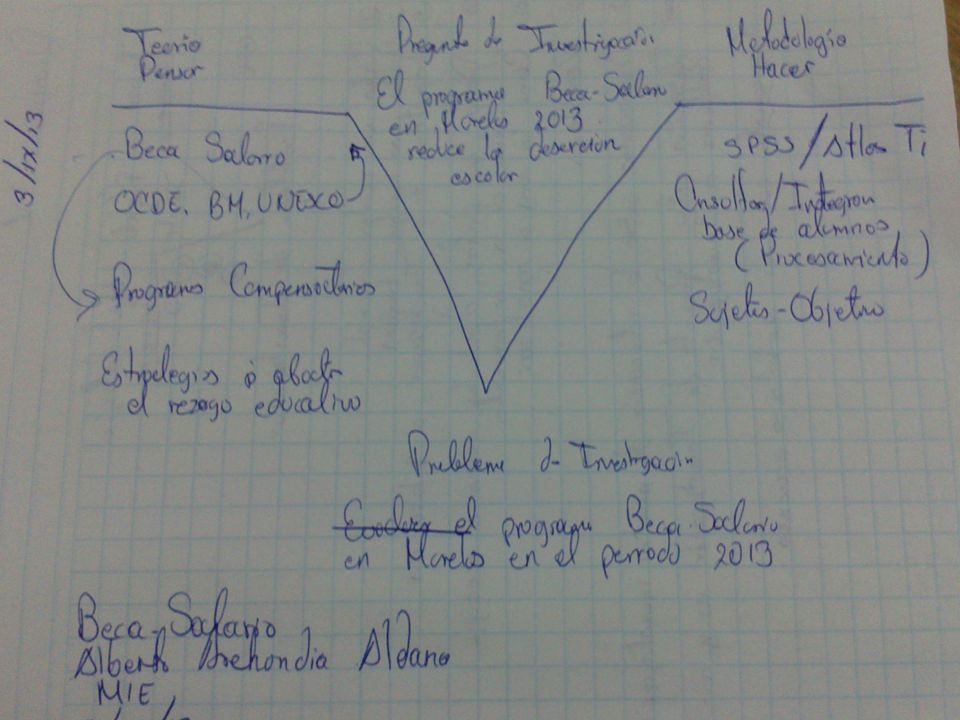 3/IX/13
Teoria
Pensar
Pregunta de Investigación
El programa Beca-Salario
en Morelos 2013
reduce la deserción
escolar
Metodología
Hacer
Beca Salario
OCDE, BM, UNEXCO
Programas Compensatorios
Estrategias p abatir
el rezago educativo
SPSS / Atlas Ti
Consultar/Integran
base de alumnos
(Procesamiento)
Sujetos-Objetivo
Problema de Investigación
Evaluar el programa Beca-Salario
en Morelos en el periodo 2013
Beca-Salario
Alberto Aldana
MIE